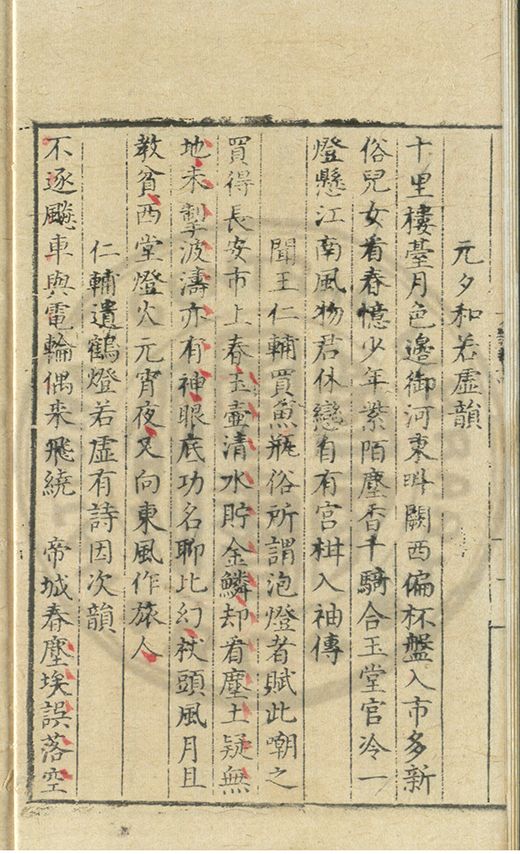 元夕和若虛韻
十里樓臺月色邊御河東畔闕西偏杯盤入市多新
俗兒女看春憶少年紫陌塵香千騎合玉堂官冷一
燈懸江南風物君休戀自有宮柑入袖傳
聞王仁輔買魚瓶俗所謂泡燈者賦此嘲之
買得長安市上春玉壺清水貯金鱗却看塵土疑無
地未掣波濤亦有神眼底功名聊比幻杖頭風月且
教貧西堂燈火元宵夜又向東風作旅人
仁輔遺鶴燈若虛有詩因次韻
不逐飈車與電輪偶來飛繞 帝城春塵埃誤落空